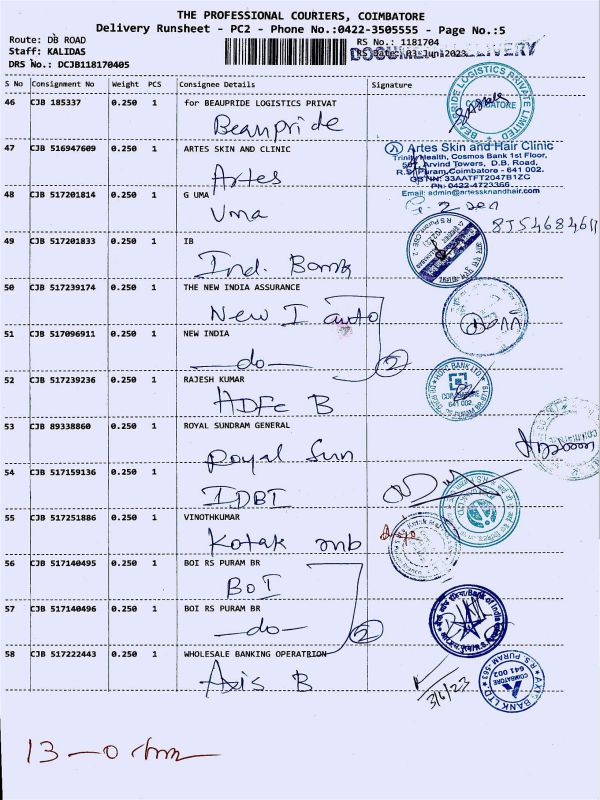 THE PROFESSIONAL COURIERS, COIMBATORE
Delivery Runsheet - PC2 - Phone No.:0422-3505555 - Page No.:5
Route: DB ROAD
RS No.: 1181704
Staff: KALIDAS
RS Date: 03-Jun-2023
DRS No.: DCJB118170405
S No Consignment No Weight PCS Consignee Details Signature
46 CJB 185337 0.250 1 for BEAUPRIDE LOGISTICS PRIVAT
Beaupride
BEAUPRIDE LOGISTICS PRIVATE LIMITED
COIMBATORE
47 CJB 516947609 0.250 1 ARTES SKIN AND CLINIC
Artes
Artes Skin and Hair Clinic
Trinity Health, Cosmos Bank 1st Floor,
Arvind Towers, D.B. Road,
R.S. Puram, Coimbatore - 641 002.
GSTNK 33AATFT2047B1ZC
Ph: 0422-4723366
Email: admin@artessknandhair.com
48 CJB 517201814 0.250 1 G UMA
Uma
49 CJB 517201833 0.250 1 IB
Ind. Bank
50 CJB 517239174 0.250 1 THE NEW INDIA ASSURANCE
New I auto
51 CJB 517096911 0.250 1 NEW INDIA
-do-
2
52 CJB 517239236 0.250 1 RAJESH KUMAR
HDFC B
HDFC BANK LTD
641 002
53 CJB 89338860 0.250 1 ROYAL SUNDRAM GENERAL
Royal Sun
54 CJB 517159136 0.250 1
IDBI
55 CJB 517251886 0.250 1 VINOTHKUMAR
Kotak mb
56 CJB 517140495 0.250 1 BOI RS PURAM BR
BOI
57 CJB 517140496 0.250 1 BOI RS PURAM BR
-do-
2
Bank of India
58 CJB 517222443 0.250 1 WHOLESALE BANKING OPERATRION
Axis B
3/6/23
AXIS BANK LTD
R S PURAM-563
COIMBATORE
641 002
13-0